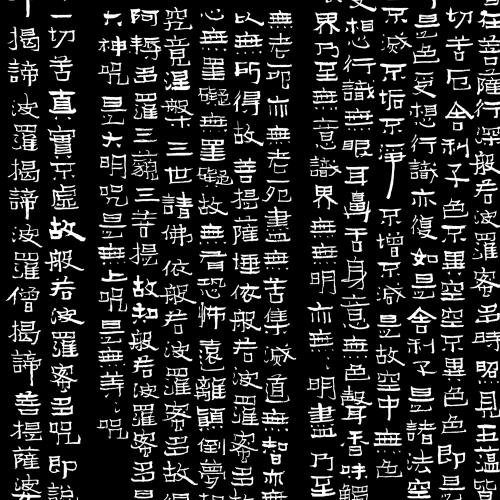 在菩薩行深般若波羅蜜多時照見五蘊
切苦厄舍利子色不異空空不異色色即是
是色受想行識亦復如是舍利子是諸法空
不滅不垢不淨不增不減是故空中無色
受想行識無眼耳鼻舌身意無色聲香味觸
界乃至無意識界無無明亦無〻明盡乃至
無老死亦無老死盡無苦集滅道無智亦
以無所得故菩提薩埵依般若波羅蜜多故
心無罣礙無罣礙故無有恐怖遠離顛倒夢想
究竟涅槃三世諸佛依般若波羅蜜多故
阿耨多羅三藐三菩提故知般若波羅蜜多是
大神咒是大明咒是無上咒是無等〻咒
一切苦真實不虛故般若波羅蜜多咒即說
揭諦波羅揭諦波羅僧揭諦菩提薩婆